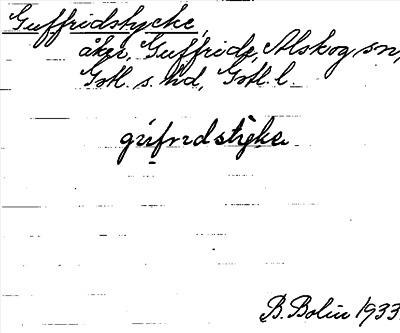 Guffridstycke,
åker, Guffride, Alskog sn,
Gotl. s. hd, Gotl. l.
gúfrıdstỳke
B. Bolin 1933